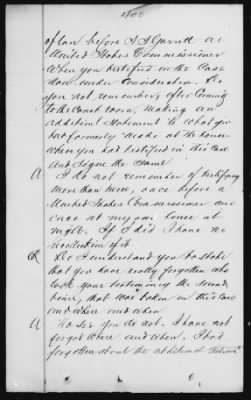 1400
of law before J J Garrett as
United States Commissioner
When you testified in the Case
now under Consideration. Do
you not, remember, after Coming
to the Court room, making an
additional Statement to what you
had formerly made at the house
when you had testified in this Case
And Signed the Same
A I do not remember of testifying
more than twice, once before a
United States Commissioner and
once at my own house at
night. If I did I have no
recollection of it
Q Do I understand you to state
that you have really forgotten who
took your testimony the second
time, that was taken in this Case
and where and when
A No Sir you do not. I have not
forgot where and when. I had
forgotten about the additional